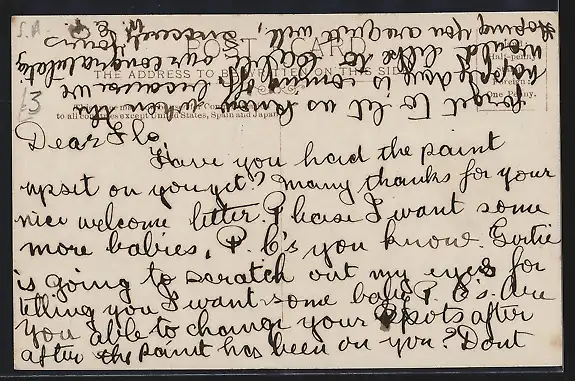 S.A.
13
POST CARD
THE ADDRESS TO BE WRITTEN ON THIS SIDE
Half-penny
Foreign
One Penny.
to all countries except United States, Spain and Japan
Dear Flo
Have you had the paint
upset on you yet? Many thanks for your
nice welcome letter. Please I want some
more babies, P. C's you know. Gertie
is going to scratch out my eyes for
telling you I want some baby P. C's. Are
you able to change your spots after
after the paint has been on you? Dont
forget to let us know when the
happy day is coming off because we
would like to cable our congratulations
Hoping you are quite well,
Yours
sincerely